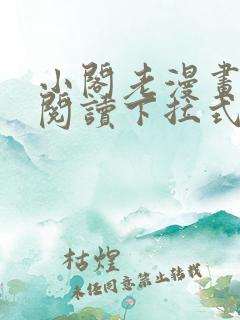 小閣老漫畫
閱讀下拉式
枯煌
未经同意禁止转载